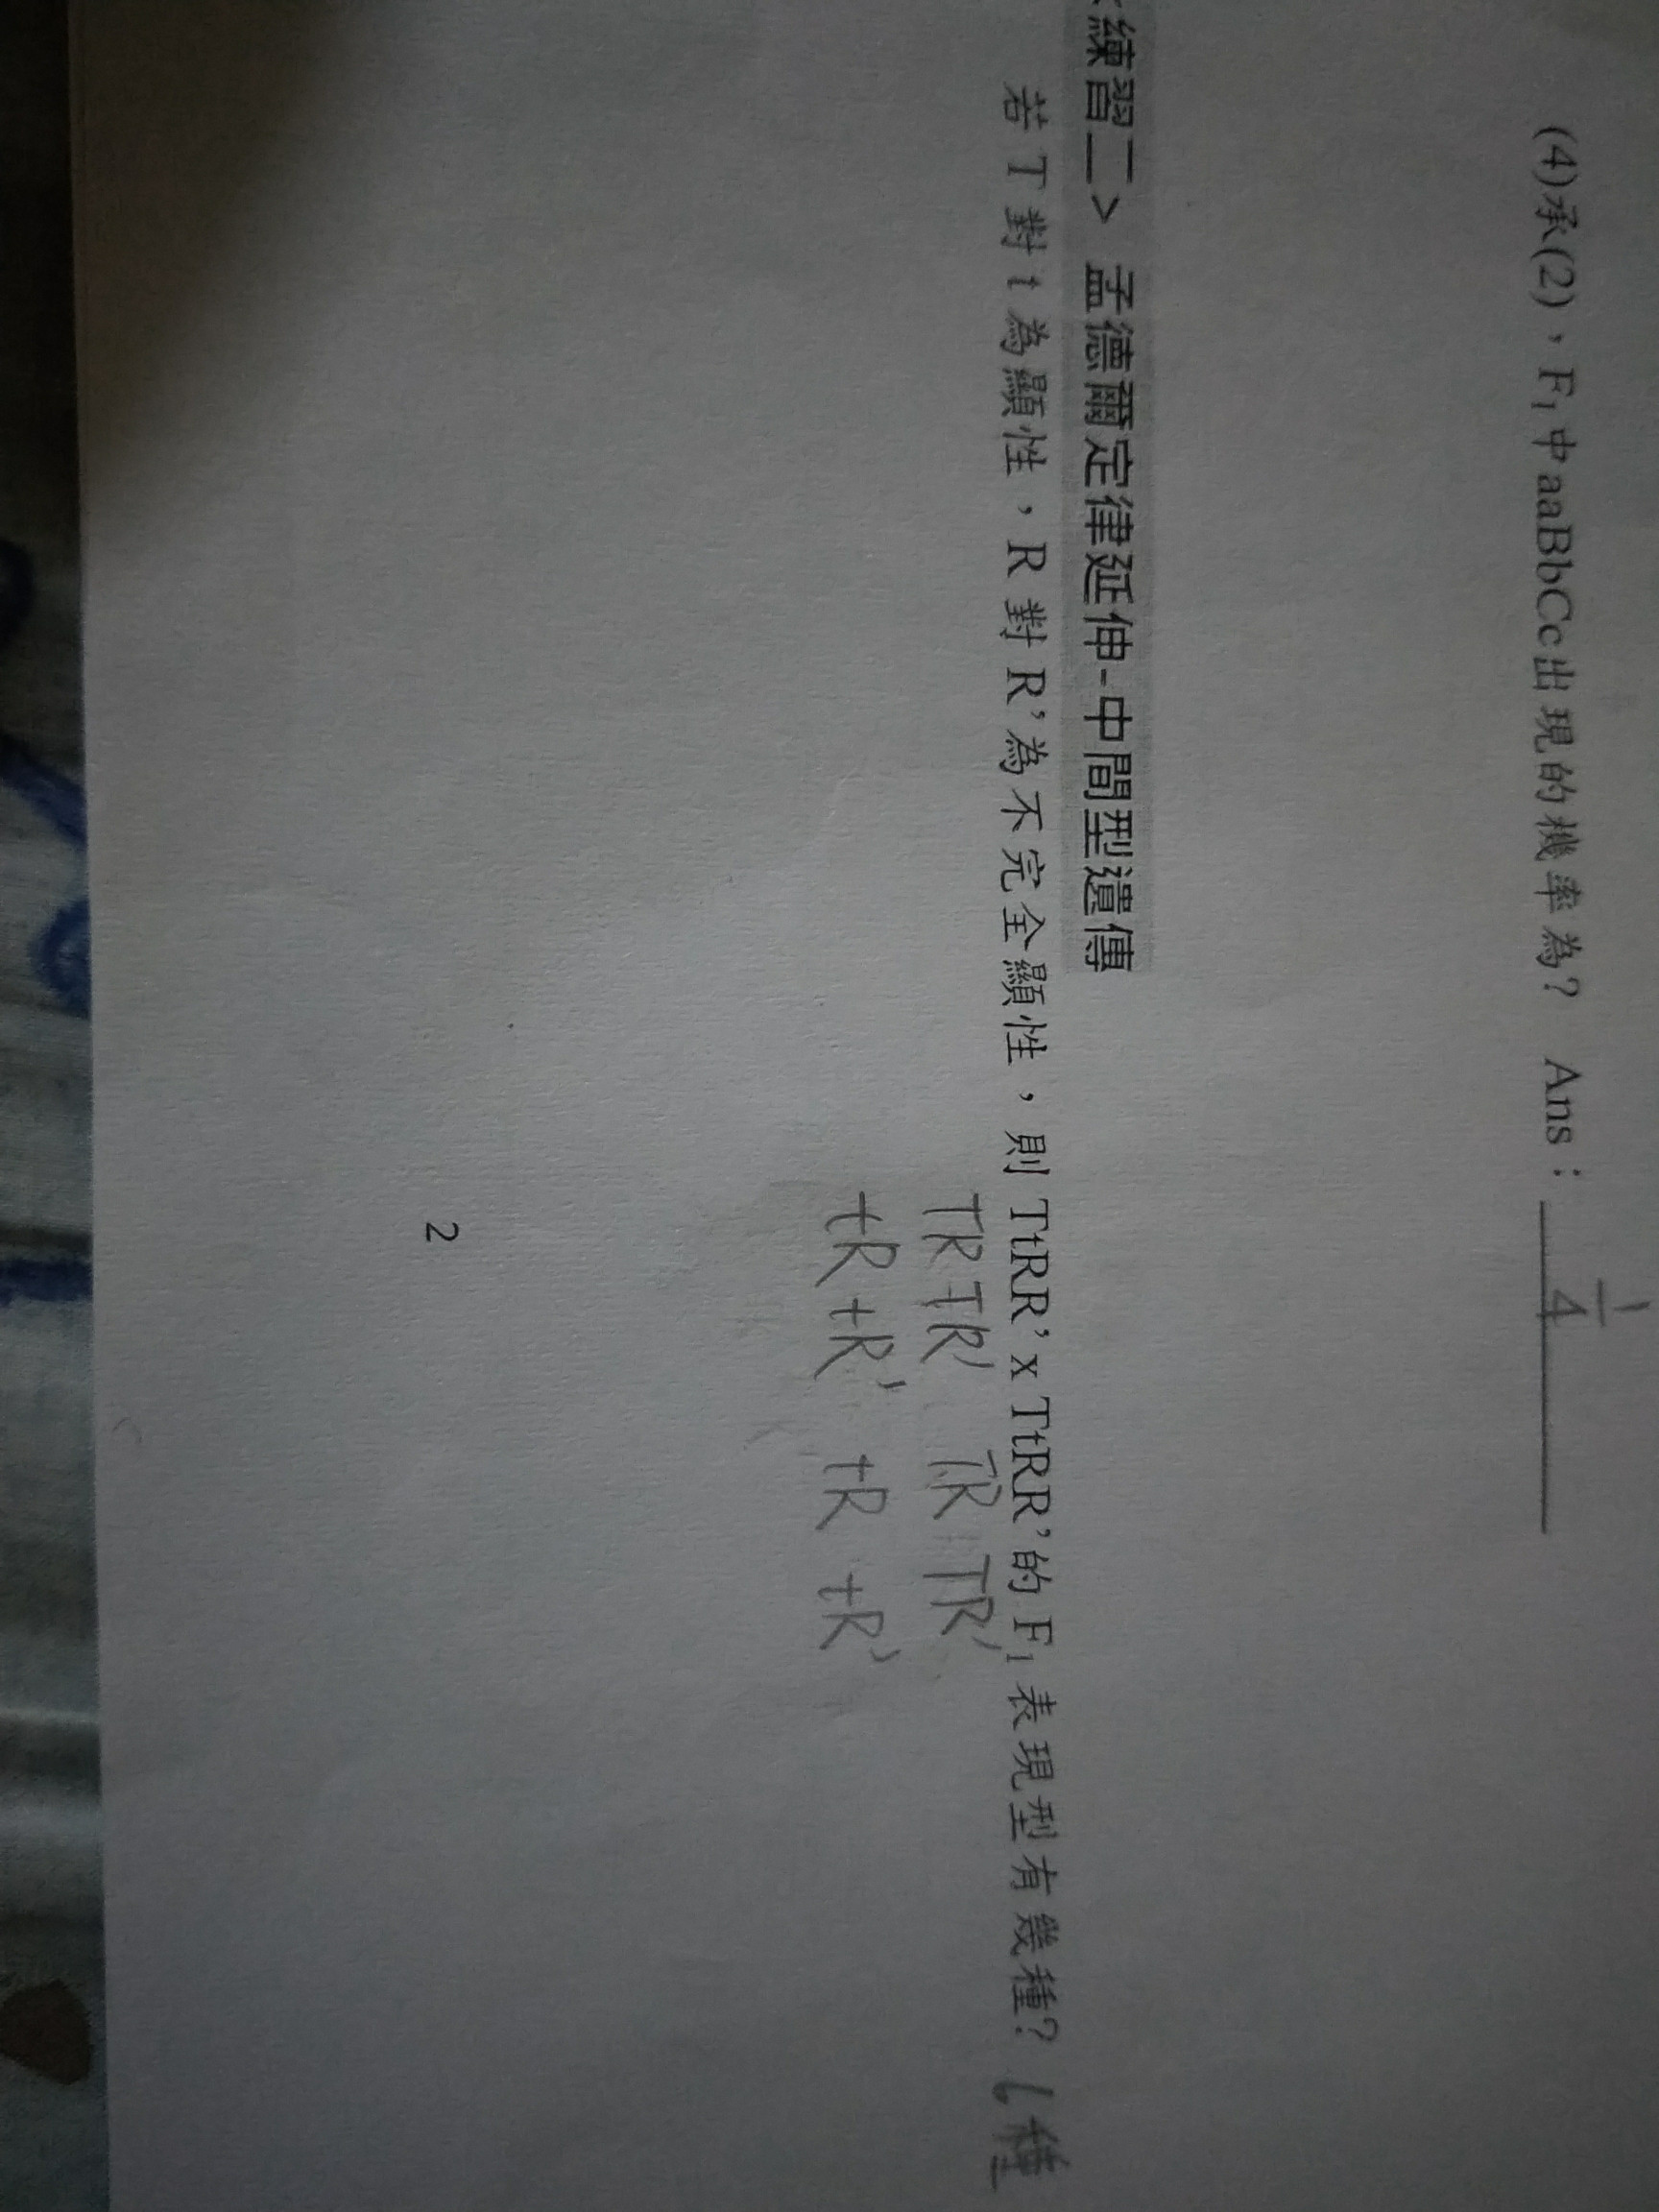 (4)承(2)，F1中aaBbCc出現的機率為？ Ans： 1/4
練習二> 孟德爾定律延伸-中間型遺傳
若 T 對 t 為顯性，R 對 R’為不完全顯性，則 TtRR’ x TtRR’的 F1 表現型有幾種？ 6種
TR TR' TR TR'
tR tR' tR tR'
2